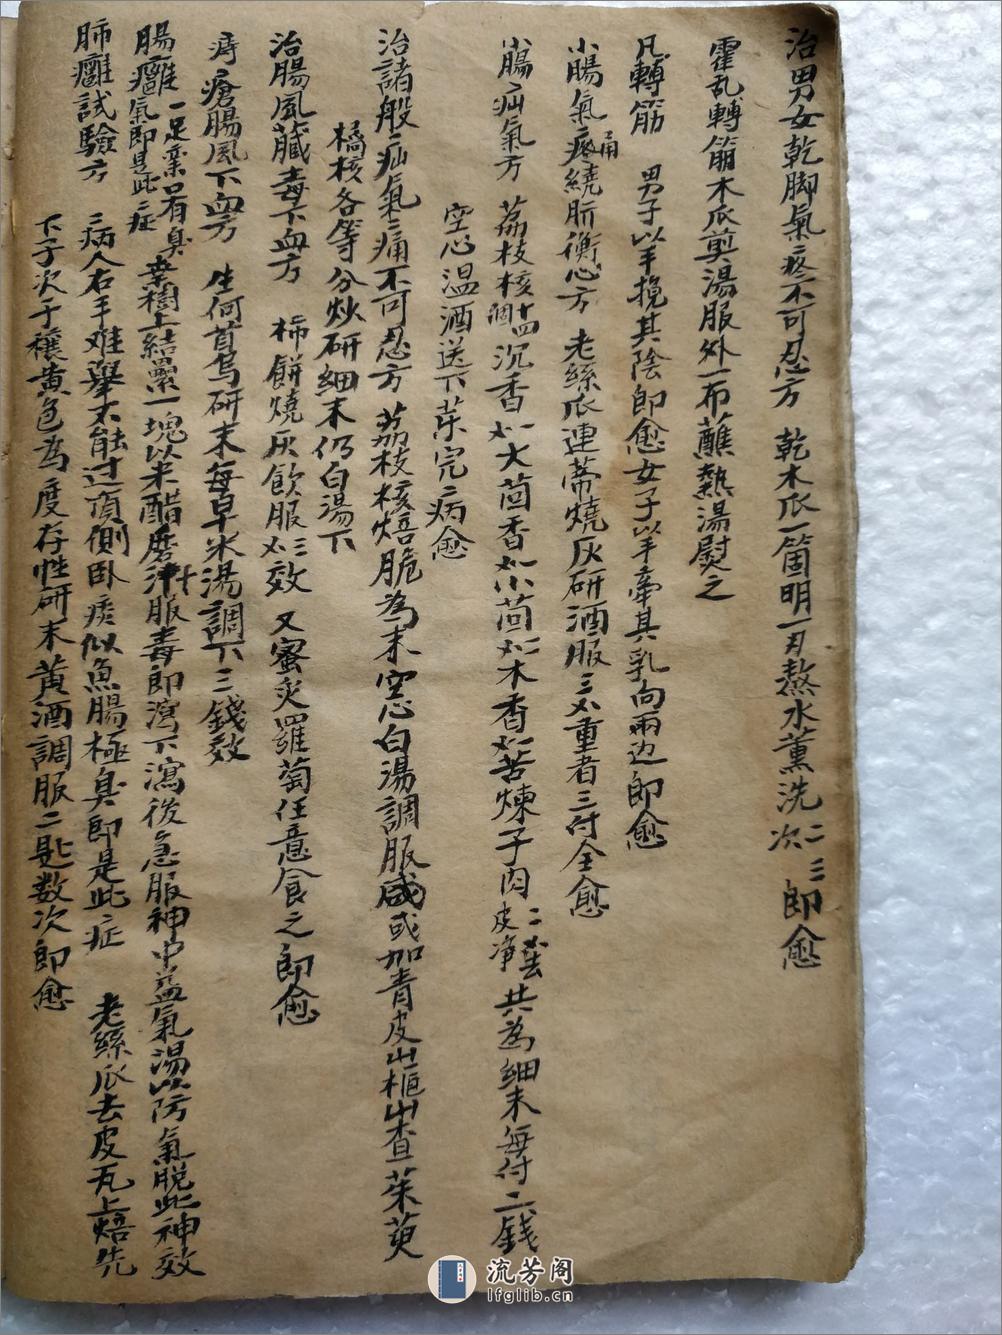 治男女乾脚氣疼不可忍方 乾木瓜一箇明一刃熬水薰洗二三次即愈
霍乱轉筋木瓜煎湯服外一布蘸熱湯熨之
凡轉筋 男子以手挽其陰即愈女子以手牽其乳向兩边即愈
小腸氣痛繞脐衝心方 老絲瓜連蒂燒灰研酒服三不重者三付全愈
小腸疝氣方 荔枝核十四個沉香 大茴香 小茴 木香 苦楝子肉 皮净 共為細末每付二錢
空心温酒送下菜完病愈
治諸般疝氣痛不可忍方 荔枝核焙脆為末空心白湯調服或加青皮山梔山查茱萸
橘核各等分炒研細末仍白湯下
治腸風臟毒下血方 柿餅燒灰飲服 效 又蜜炙羅蔔任意食之即愈
痔瘡腸風下血方 生何首烏研末每早米湯調下二錢效
腸癰一足 口有臭氣即是此症 樹上結壘一塊以米醋磨汁服毒即瀉下瀉後急服神中益氣湯以防氣脱此神效
肺癰試驗方 病人右手难舉不能过頂側卧痰似魚腸極臭即是此症 老絲瓜去皮瓦上焙先
下子次于穰黄色為度存性研末黄酒調服二匙数次即愈
流芳阁
lfglib.cn